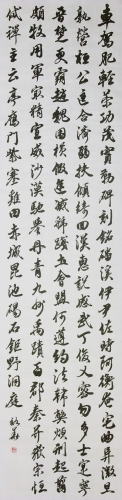 車駕肥輕策功茂實勒碑刻銘磻溪伊尹佐時阿衡奄宅曲阜微旦
孰營桓公匡合濟弱扶傾綺回漢惠說感武丁俊乂密勿多士寔寧
晉楚更霸趙魏困橫假途滅虢踐土會盟何遵約法韓弊煩刑起翦
頗牧用軍最精宣威沙漠馳譽丹青九州禹蹟百郡秦并嶽宗恒
岱禪主云亭雁門紫塞雞田赤城昆池碣石鉅野洞庭